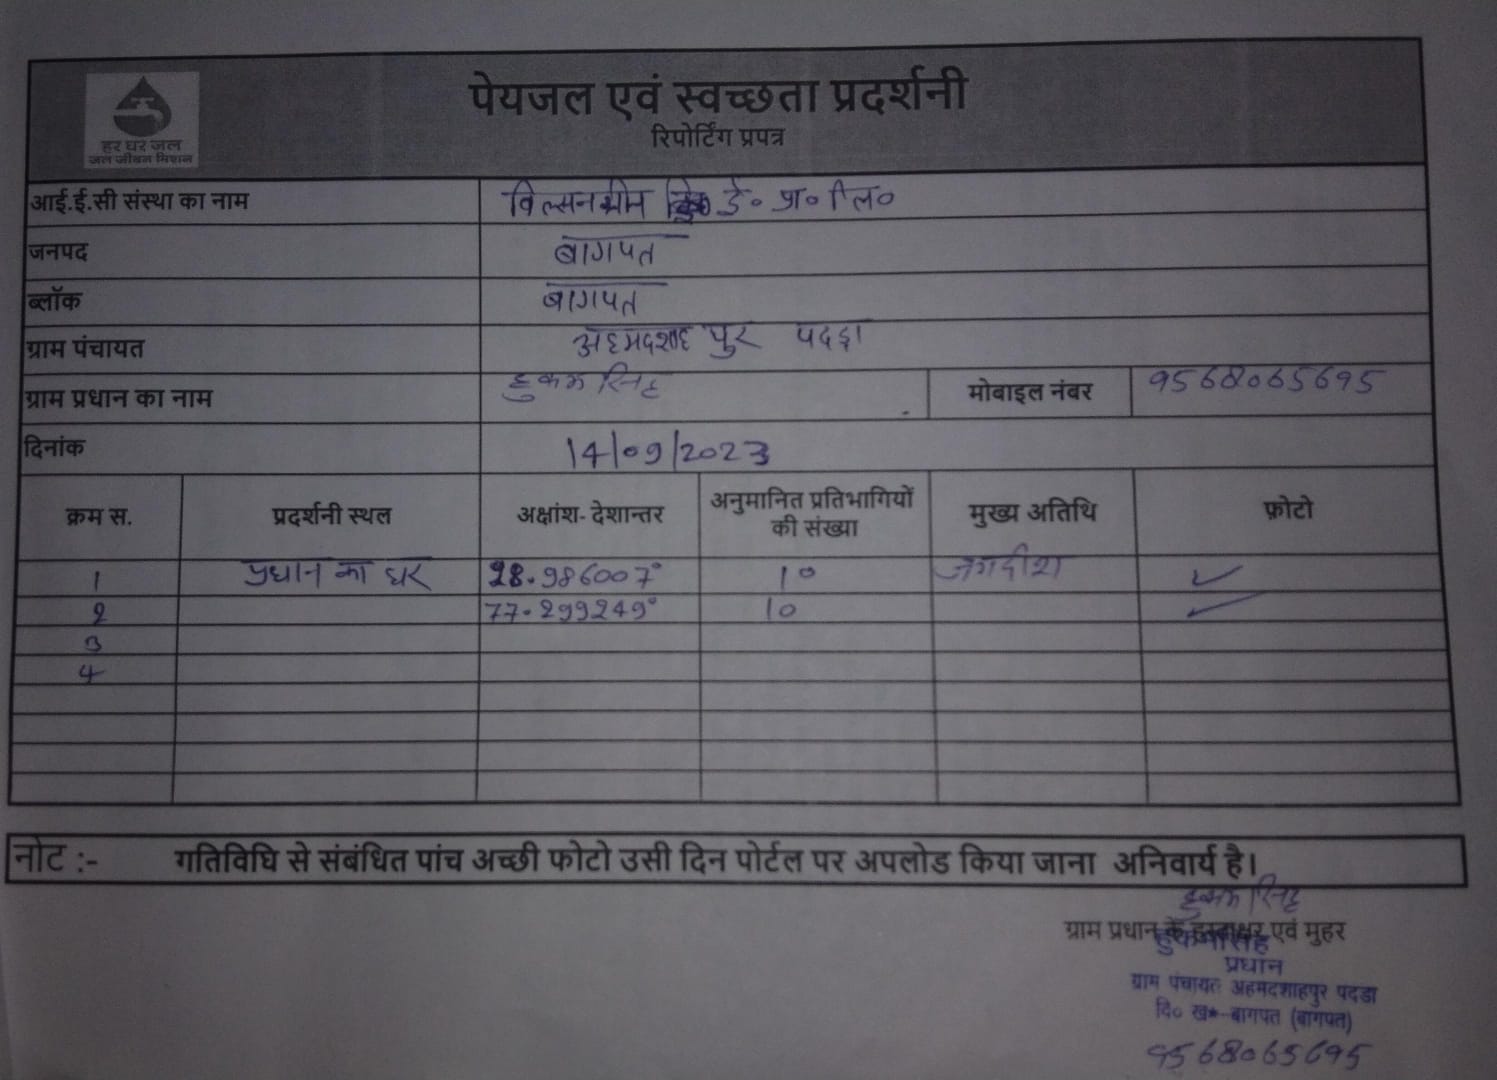 हर घर जल
जल जीवन मिशन
पेयजल एवं स्वच्छता प्रदर्शनी
रिपोर्टिंग प्रपत्र
आई.ई.सी संस्था का नाम विल्सनग्रीन इ० प्रा० लि०
जनपद बागपत
ब्लॉक बागपत
ग्राम पंचायत अहमदशाहपुर पदडा
ग्राम प्रधान का नाम हुकम सिंह मोबाइल नंबर 9568065695
दिनांक 14/09/2023
क्रम स. प्रदर्शनी स्थल अक्षांश- देशान्तर अनुमानित प्रतिभागियों की संख्या मुख्य अतिथि फ़ोटो
1 प्रधान का घर 28.986007° 10 जगदीश ✓
2 77.299249° 10 ✓
3
4
नोट :- गतिविधि से संबंधित पांच अच्छी फोटो उसी दिन पोर्टल पर अपलोड किया जाना अनिवार्य है।
हुकम सिंह
ग्राम प्रधान के हस्ताक्षर एवं मुहर
हुकम सिंह
प्रधान
ग्राम पंचायत अहमदशाहपुर पदडा
वि० ख०-बागपत (बागपत)
9568065695